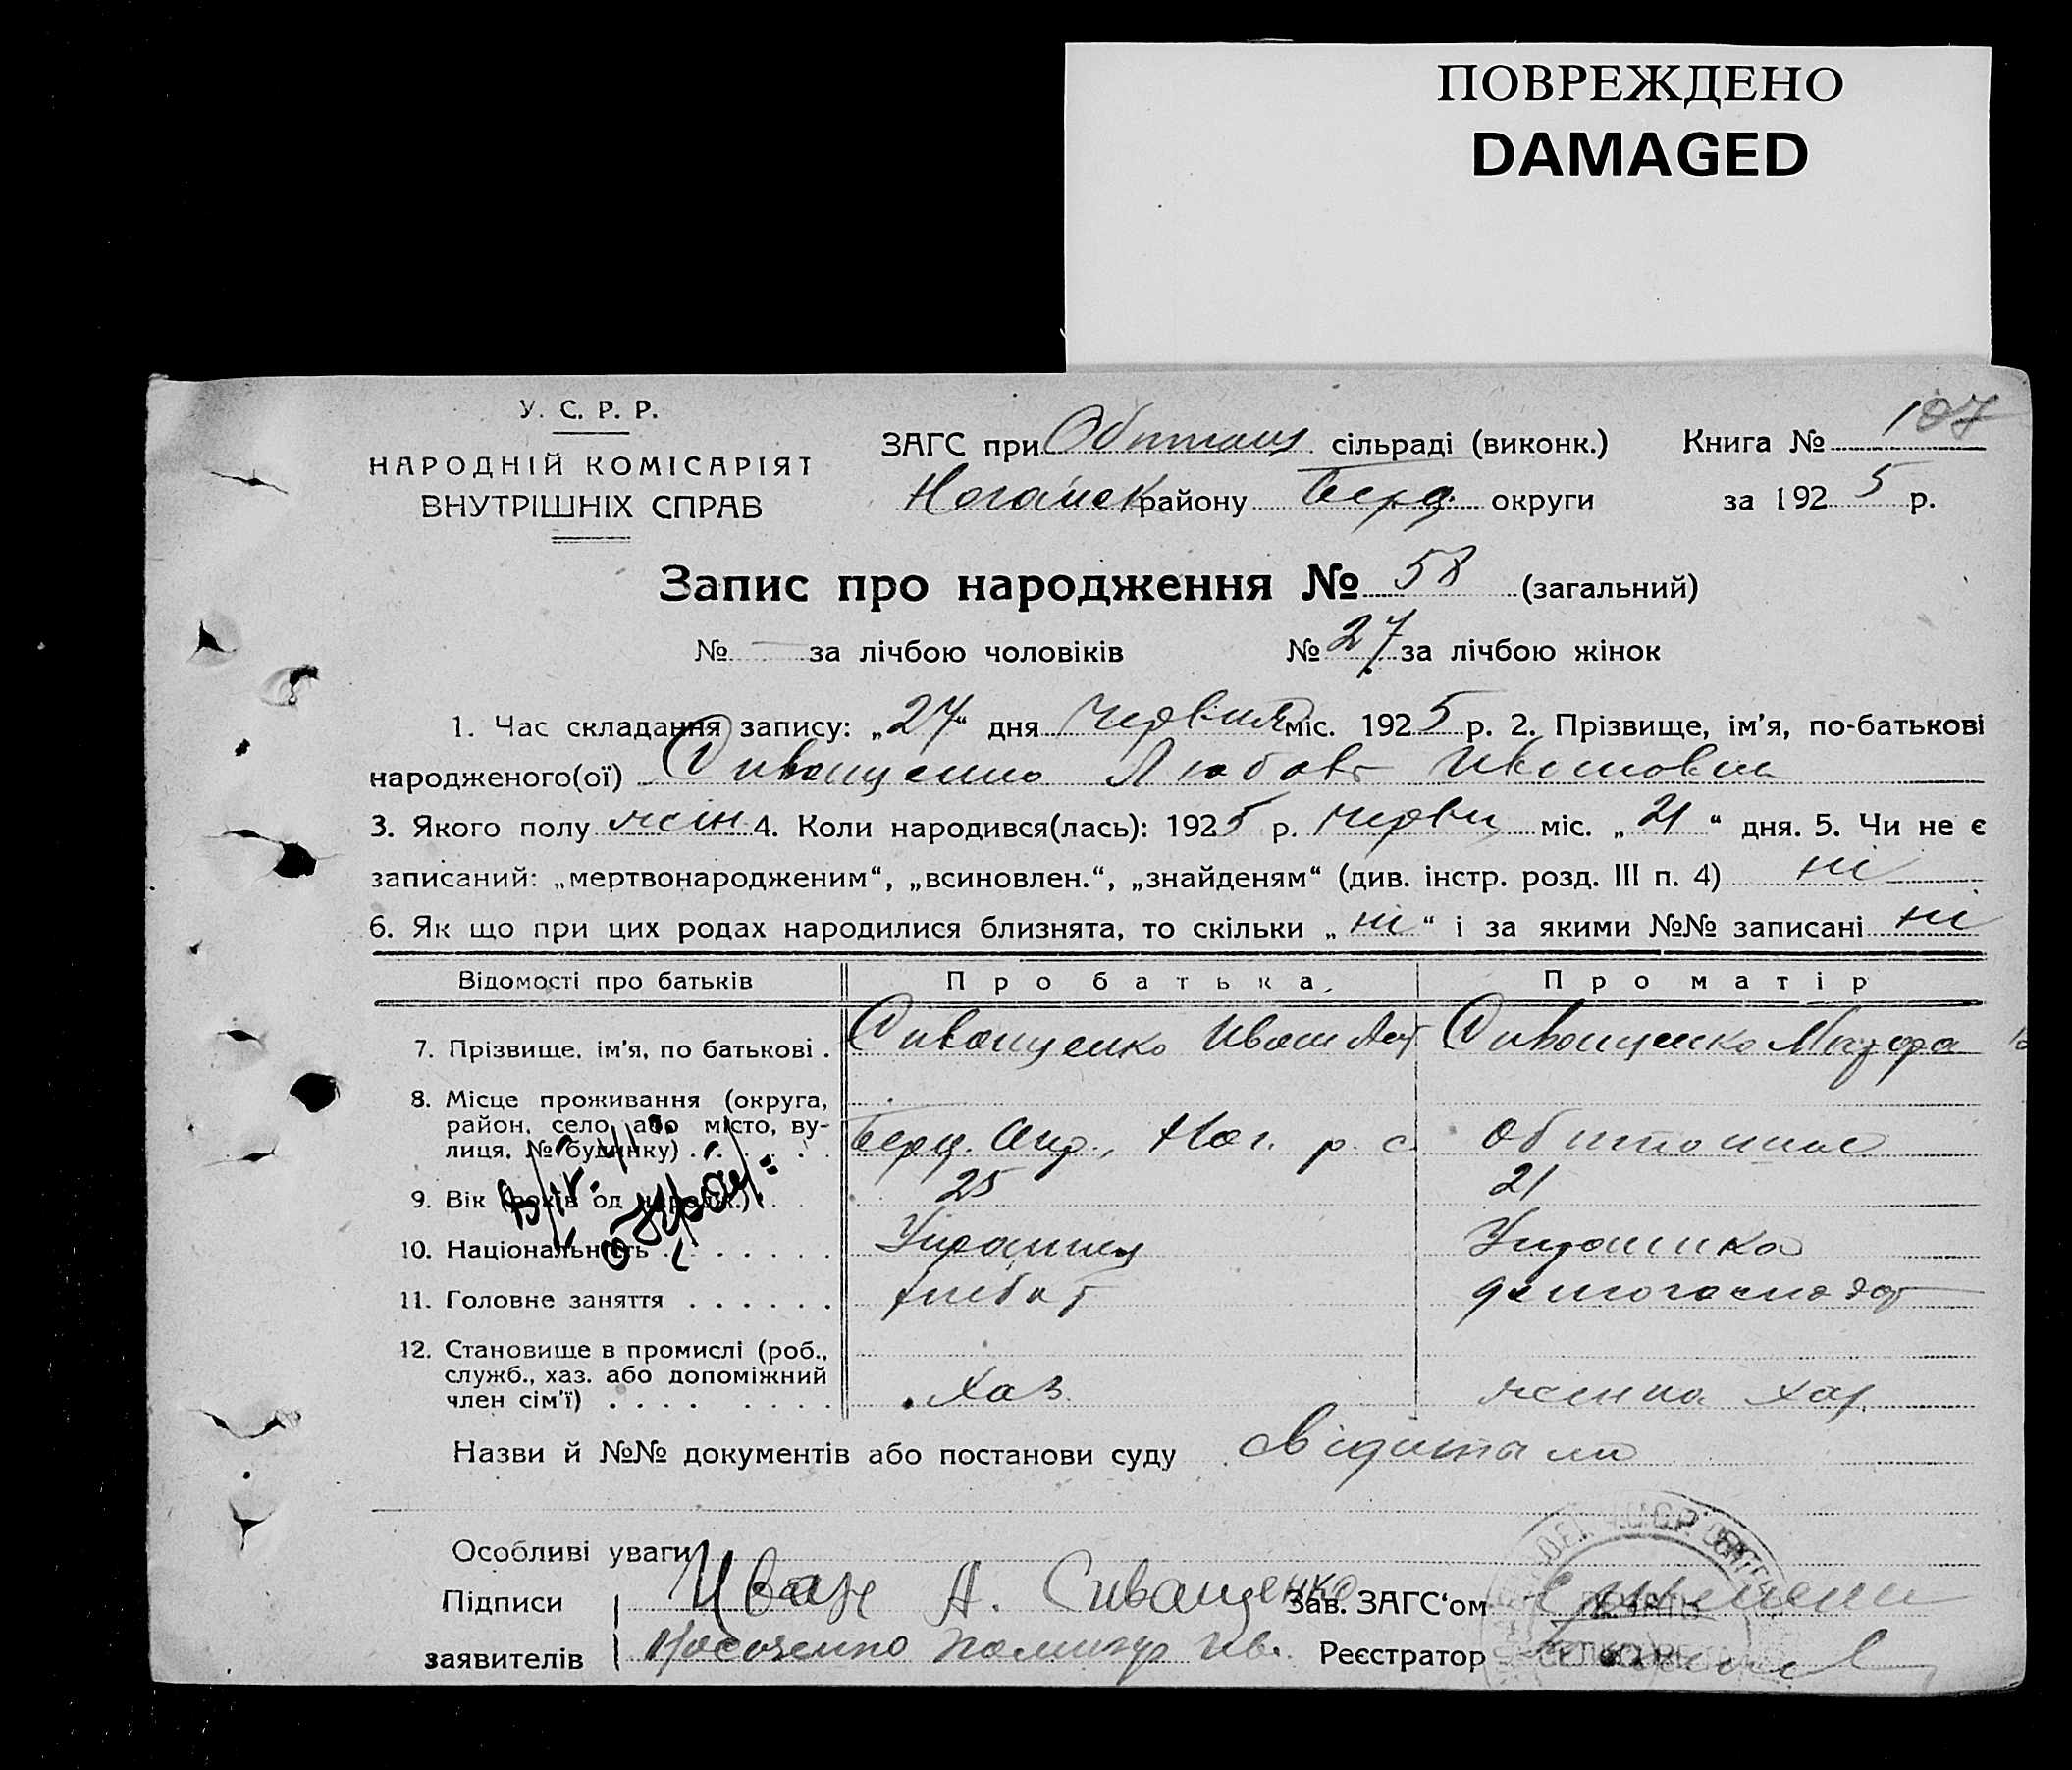 ПОВРЕЖДЕНО
DAMAGED
У. С. Р. Р.
НАРОДНІЙ КОМІСАРІЯТ
ВНУТРІШНІХ СПРАВ
ЗАГС при сільраді (виконк.) Книга № 107
Ногайск району Берд. округи за 1925 р.
Запис про народження № 58 (загальний)
№ — за лічбою чоловіків № 27 за лічбою жінок
1. Час складання запису: „27“ дня Червня міс. 1925 р. 2. Прізвище, ім'я, по-батькові
народженого(ої) Сиващенко Любовь Ивановна
3. Якого полу жін 4. Коли народився(лась): 1925 р. червн міс. „21“ дня. 5. Чи не є
записаний: „мертвонародженим“, „всиновлен.“, „знайденям“ (див. інстр. розд. III п. 4) ні
6. Як що при цих родах народилися близнята, то скільки „ні“ і за якими №№ записані ні
Відомості про батьків Про батька, Про матір
7. Прізвище, ім'я, по батькові . Сиващенко Иван Сиващенко
8. Місце проживання (округа,
район, село або місто, ву-
лиця, № будинку) Берд. Окр., Ног. р. с. Обиточне
9. Вік (років од народж.) 25 21
10. Національність Українец Українка
11. Головне заняття хлібор домогоспод
12. Становище в промислі (роб.,
служб., хаз. або допоміжний
член сім'ї) Хаз. жінка хаз.
Назви й №№ документів або постанови суду
Особливі уваги
Підписи Иван А. Сиващенко Зав. ЗАГС'ом
заявителів Ив. Реєстратор